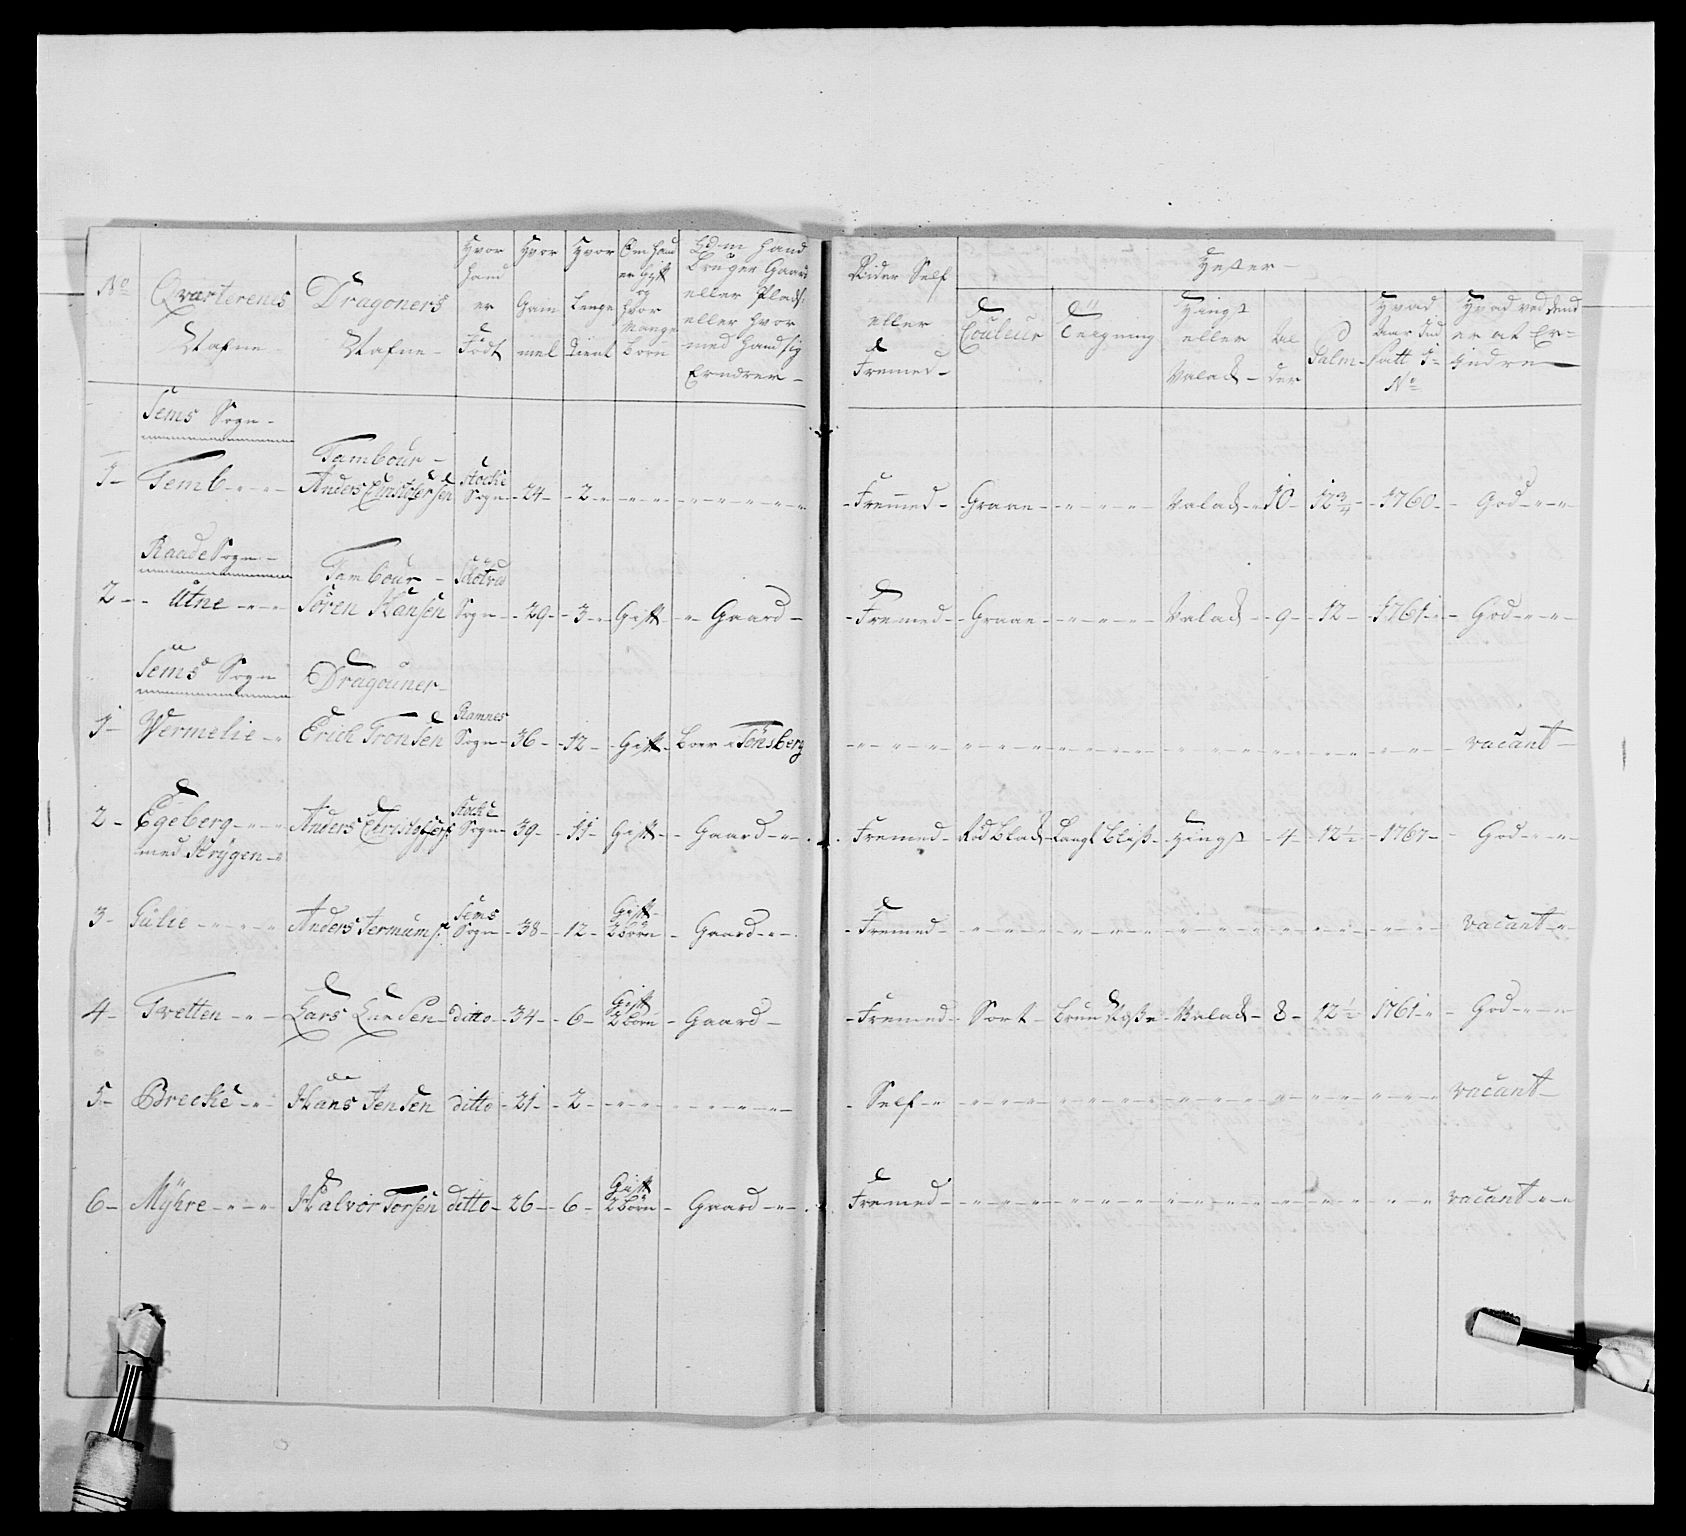 No
Qvarterenes Nafne
Dragoners Nafne
Hvor hand er Födt
Hvor Gammel
Hvor Lenge Tient
Om hand er Gift og hvor Mange Börn
Om hand Bruger Gaard eller Plads, eller hvor med hand sig Ernærer
Rider Self eller Fremed
Hester
Couleur
Teigning
Hingst eller Valak
Alder
Palm
Hvad Aar Sadt J No
Hvad ved dend er at Erindre
Sems Sogn
Tambour
1 Temb Anders Christofersen Stocke Sogn 24 2 Fremmed Graae Valak 10 12 3/4 1760 God
Raade Sogn
Tambour
2 Utne Sören Hansen Sogn 29 3 Gift Gaard Fremed Graae Valak 9 12 1761 God
Sems Sogn Dragouner
1 Vermelie Erich Tronsen Ramnes Sogn 36 12 Gift Boer i Tönsberg vacant
2 Egeberg med Krygen Anders Christophers: Stocke Sogn 39 11 Gift Gaard Fremed Röd Blak Langt Bliss Hingst 4 12 1/2 1767 God
3 Gulie Anders Sems Sogn 38 12 Gift 2 Börn Gaard Fremed vacant
4 Tvetten Lars Larsen ditto 34 6 Gift 2 Börn Gaard Fremed Sort Brun Valak 8 12 1/2 1761 God
5 Brecke Hans Jensen ditto 21 2 Self vacant
6 Myhre Halvor Torsen ditto 26 6 Gift 2 Börn Gaard Fremed vacant